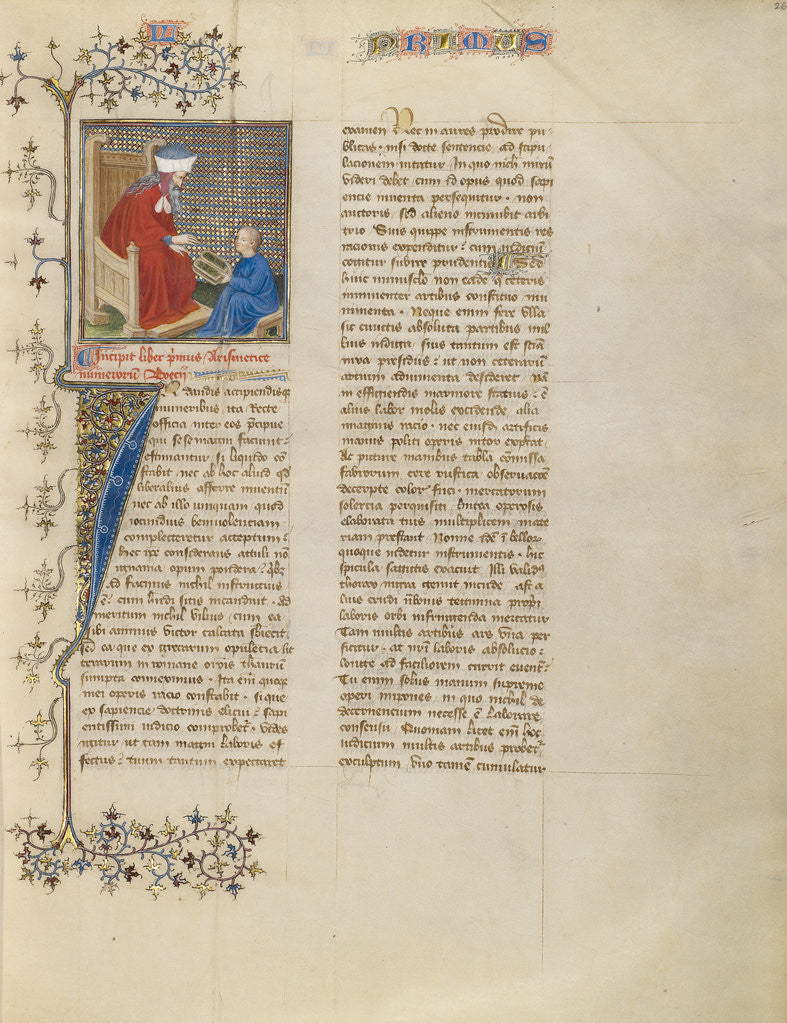 26
L PRIMUS
Incipit liber p̄mus Arismetice
numerorū Boecii
In dandis accipiendisq̨
muneribus ita Recte
officia inter eos p̄cipue
qui sese magni faciunt
estimantur si liquido cō
stabit nec ab hoc aliud qd
liberalius afferre inventū
nec ab illo unquam quod
iocundius benivolenciam
complecteretur acceptum
hec ip̄e considerans attuli nō
ignauia opum pondera quibus
ad facinus nichil instructius
ē cum habendi sitis incanduit ad
meritum nichil vilius cum ea
sibi animus victor calcata sbiecit
sed ea que ex grecarum opulencia lit
terarum in romane orōis thesaurū
sumpta convenimus Ita em̄ quoq̨
mei operis racio constabit si que
ex sapiencie doctrinis elicui sapi
entissimi iudicio comprobet Vides
igitur ut tam magni laboris ef
fectus tuum tantum expectaret
examen Nec in aures prodire pu
blicas nisi docte sentencie ad stipu
lacionem nitatur In quo nichil mirū
videri debet cum id opus quod sapi
encie inventa persequitur non
auctoris sed alieno incumbit arbi
trio Suis quippe instrumentis res
racionis expenditur cum iudiciū
cogitur subire prudentis Sed
huic munusclo non eadē q̄ ceteris
imminenter artibus constituo mu
nimenta Neque enim fere vlla
sic cunctis absoluta partibus nul
lius indiga suis tantum est sciān
nixa presidiis ut non ceterarum
artium adiumenta desideret Nā
in effigiendis marmore statuis ē
alius labor molis excidende alia
imaginis racio nec eiusdē artificis
manus politi operis nitor expectat
At picture manibus tabla cōmissa
fabrorum cere rustica observacōe
decerpte colorū fuci mercatorum
solercia perquisiti lintea operosis
elaborata tuis multiplicem mate
riam prestant Nonne idē bellorū
quoque videtur instrumentis hic
spicula sagittis exacuit Illi validus
thorax nigra gemit incude ast a
lius crudi umbonis tegmina propri
laboris orbi infringenda mercatur
Tam multis artibus ars vna per
ficitur at nri laboris absolucio
longe ad faciliorem currit eventū
Tu enim solus manum supremo
operi impones in quo nichil de
decernencium necesse ē laborare
consensu Quamuis licet em̄ hoc
iudicium multis artibus probetur
excultum vno tamē cumulatur